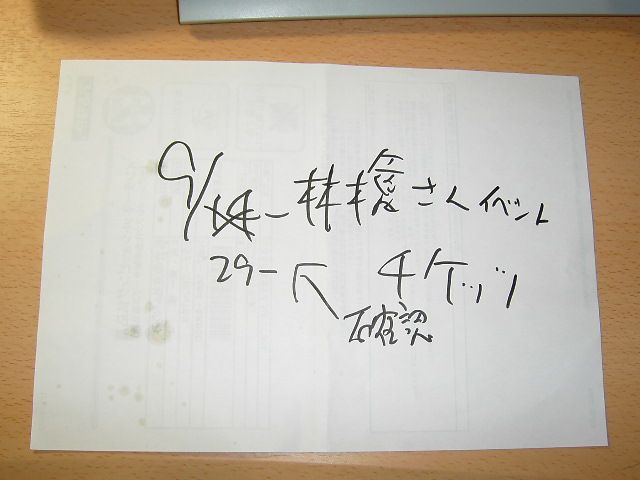 9/ 林檎さんイベント
29- チケッツ
確認